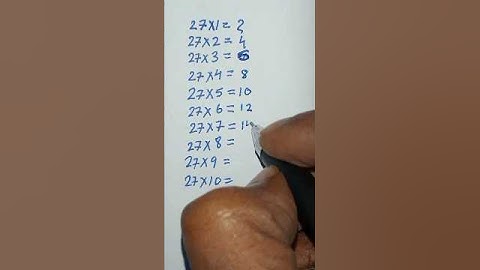 27X1= 2
27X2= 4
27X3= 6
27X4= 8
27X5= 10
27X6= 12
27X7= 14
27X8=
27X9=
27X10=